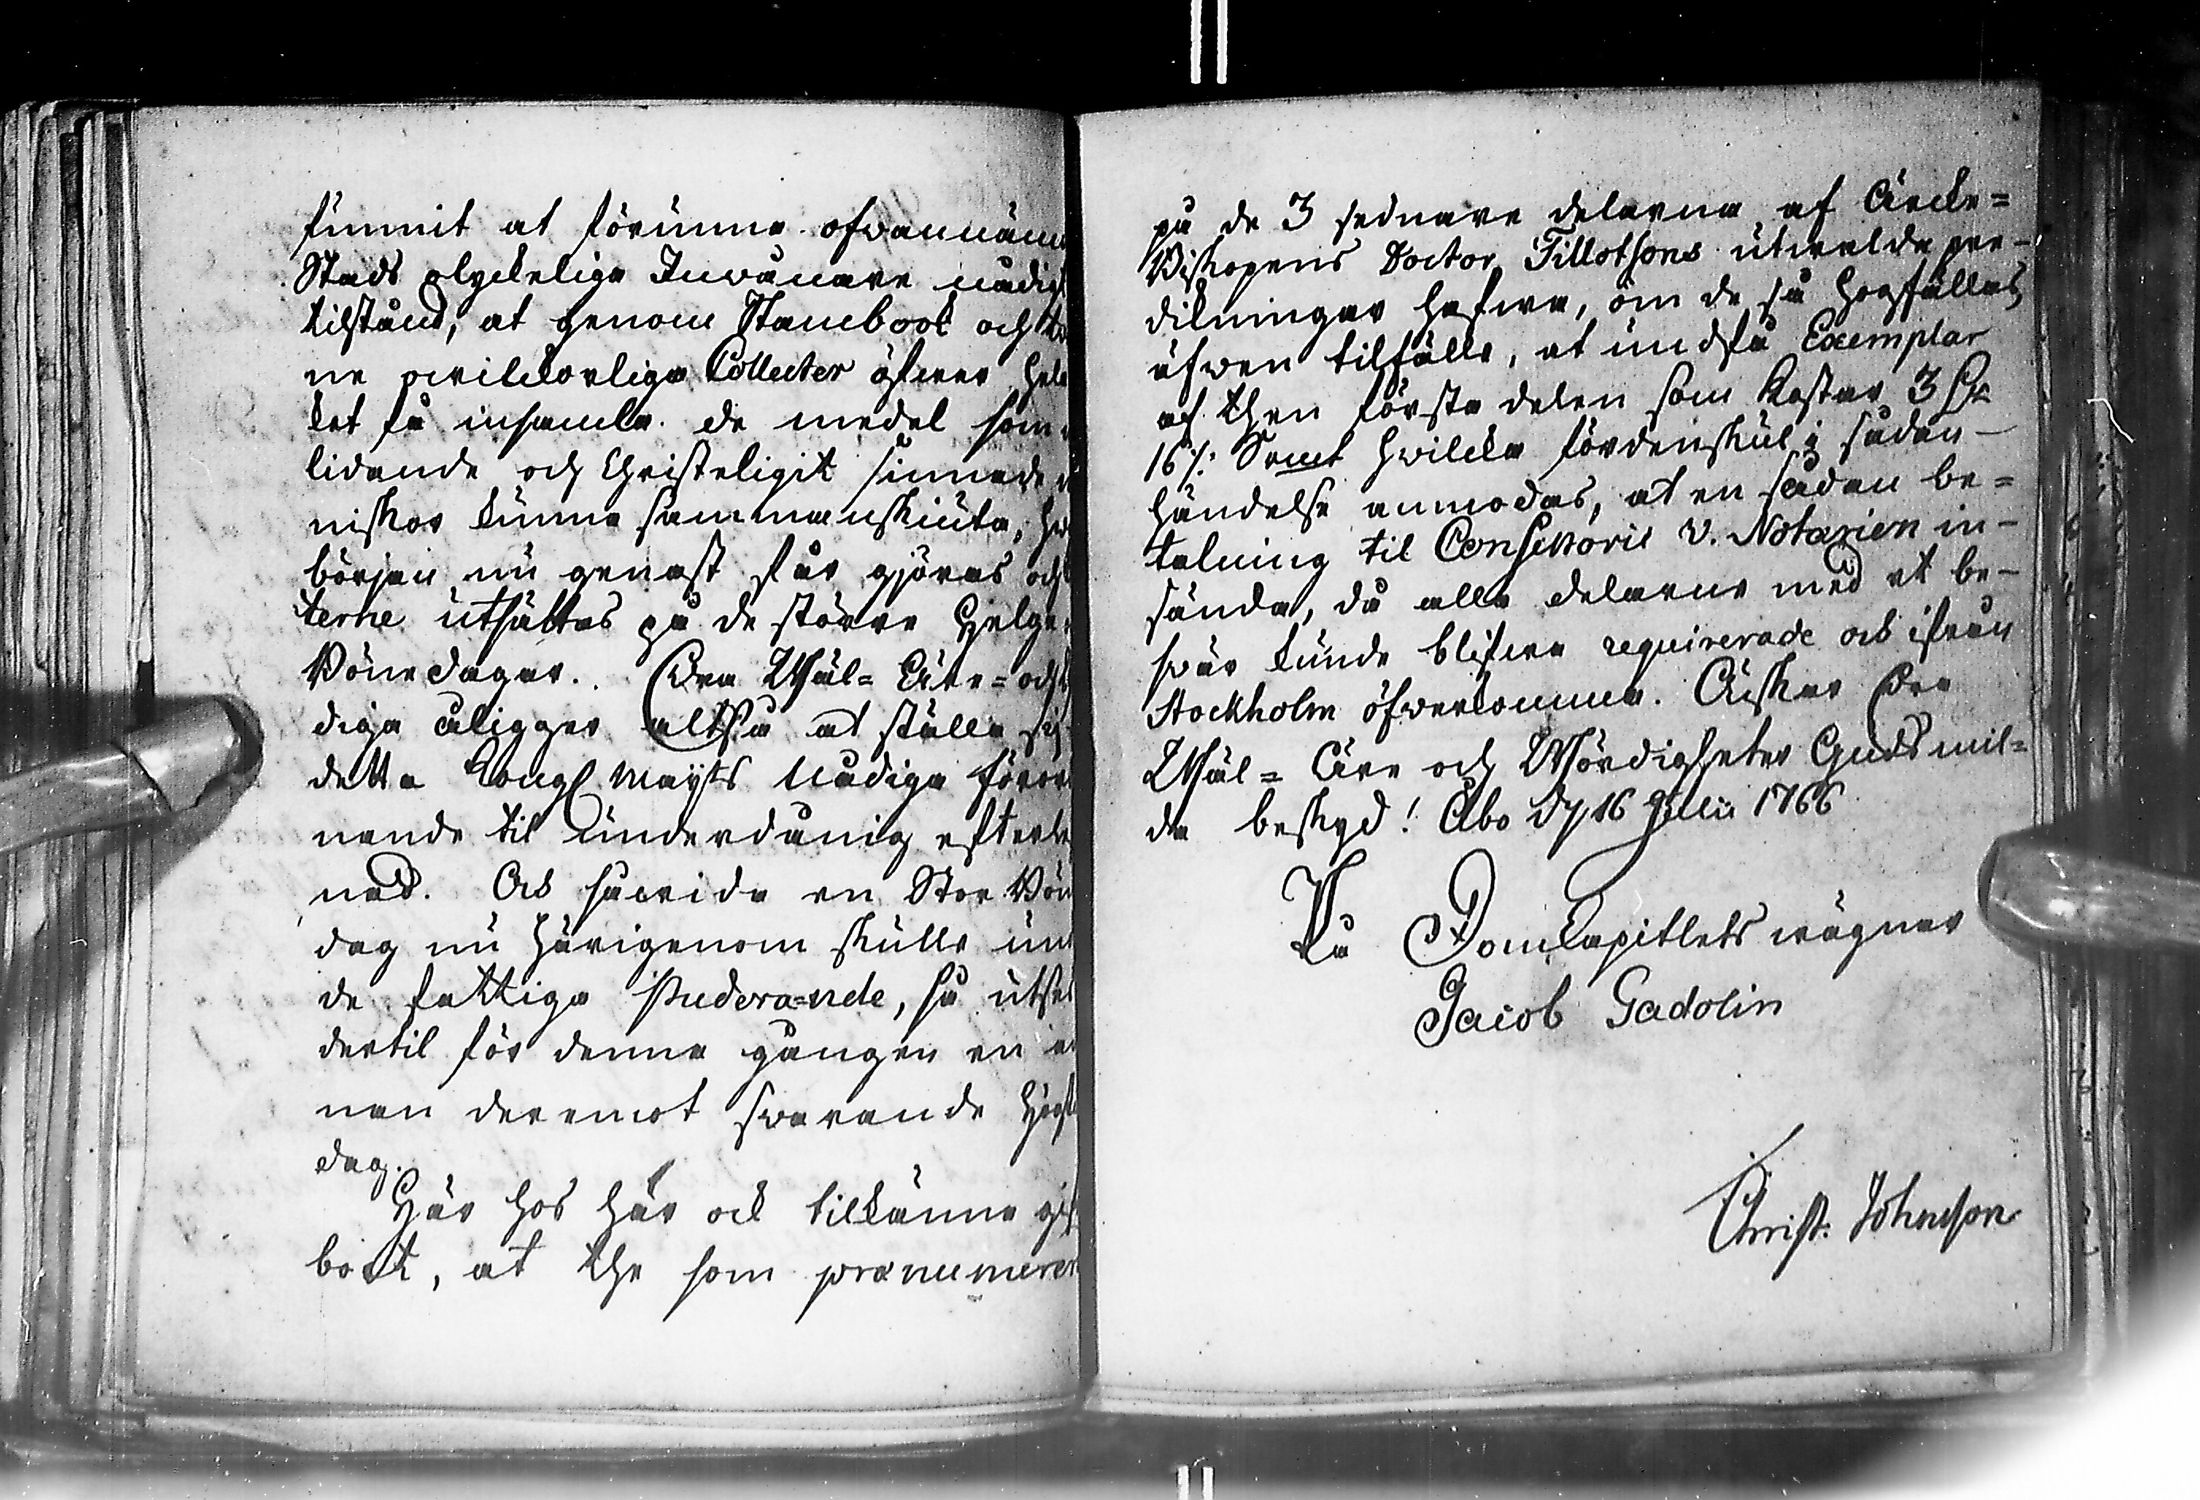 funnit at förunna ofwannäm
Stads olyckeliga Inwånare nådigt
tilstånd, at genom Stambook och
ne owilkorliga Collecter öfwer hela
ket få insamla de medel som
lidande och Christeligit sinnade
niskor kunna sammanskiuta, h
början nu genast får gjöras och
terne utsättas på de större Helge
Bönedagar. Edra Wäl-Äre- och
diga åligger altså at ställa sig
detta Kongl Mayts Nådiga föror
nande til underdånig efterle
nad. Och såwida en Stor Bön
dag nu härigenom skulle un
de fattiga Studera=nde, så utset
dertil för denna gången en
nan deremot swarande högti
dag.
Här hos här ock tilkänna gif
bort, at the som prænumerer
på de 3 sednare delarna af Ärcke=
Biskopens Doctor Tillotsons utwalda pre-
dikningar hafwa, om de så hogfällas
äfwen tilfälle, at undfå Exemplar
af then första delen som kostar 3
16 /: Smt hwilcka fördenskul i sådan
händelse anmodas, at en sådan be=
talning til Consistorii V. Notarien in-
sända, då alla delarne med et be-
swär kunde blifwa requirerade och ifrån
Stockholm öfwerkomma. Önskar Edra
Wäl= Äre och Wördigheter Guds mil=
da beskyd! Åbo d/ 16 Julii 1766
På Domkapitlets wägnar
Jacob Gadolin
Christ. Johnson